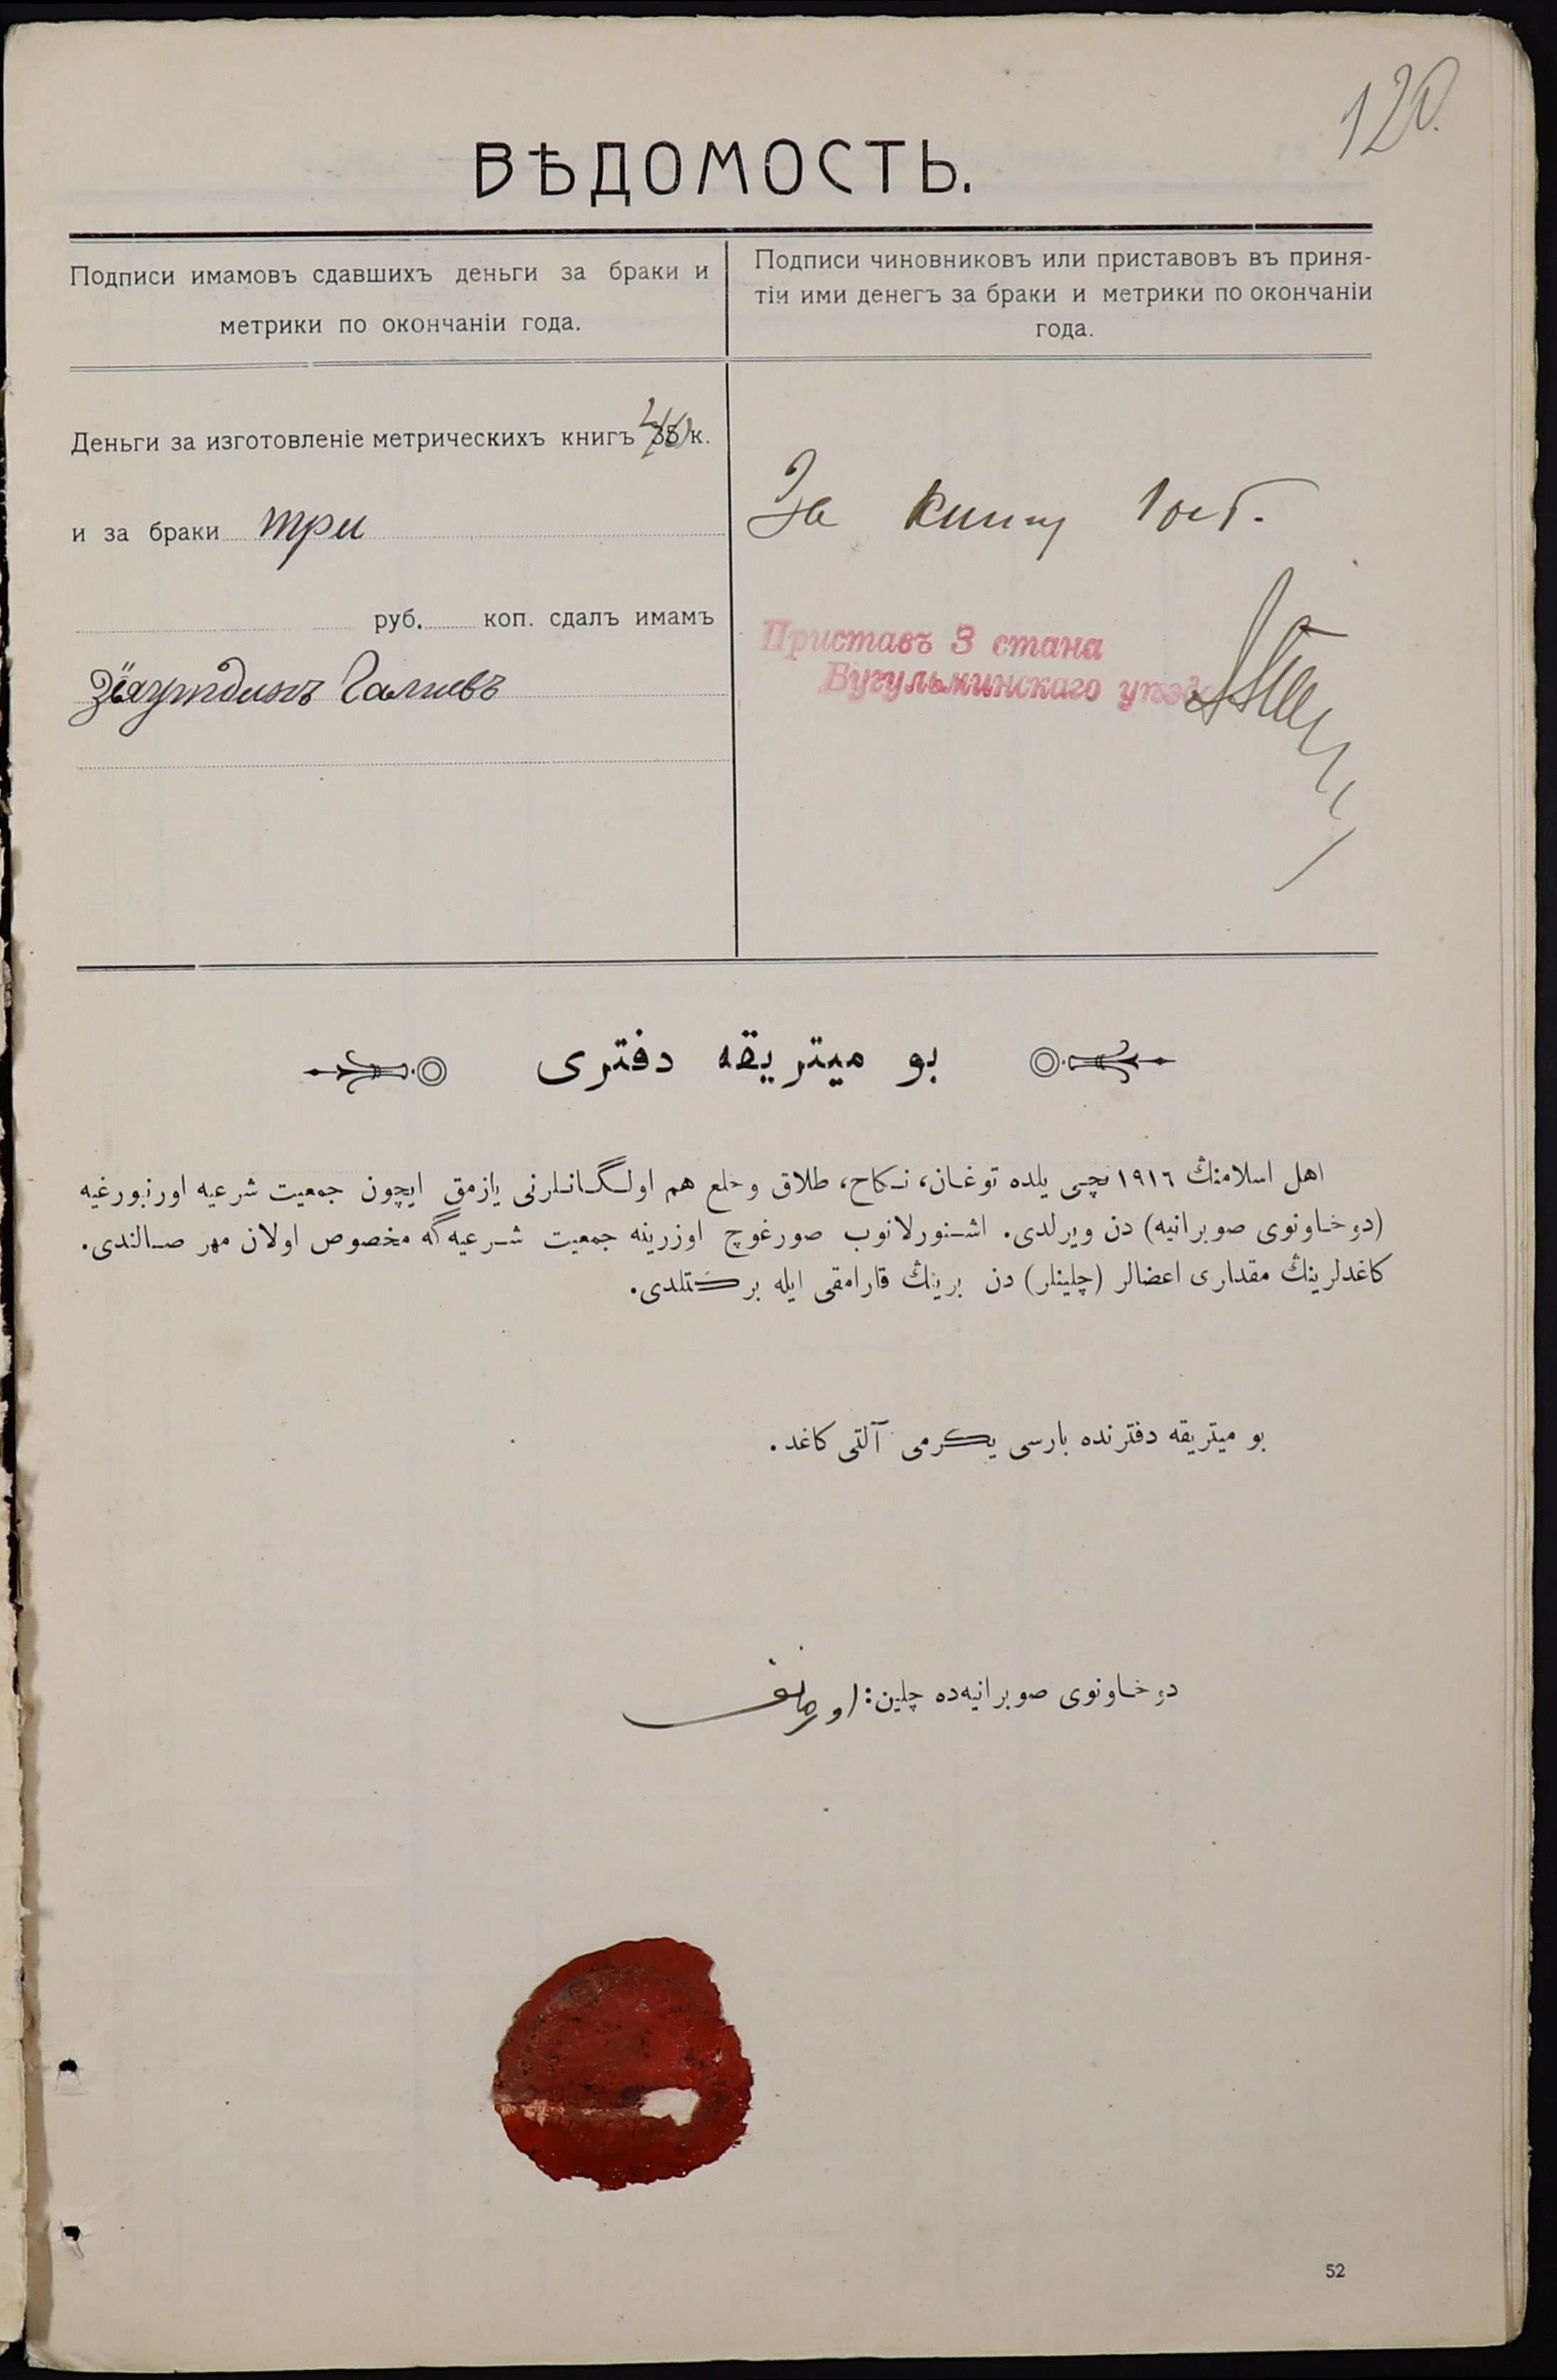 120.
ВѢДОМОСТЬ.
Подписи имамовъ сдавшихъ деньги за браки и
метрики по окончаніи года.
Подписи чиновниковъ или приставовъ въ приня-
тіи ими денегъ за браки и метрики по окончаніи
года.
Деньги за изготовленіе метрическихъ книгъ к.
и за браки три
руб. коп. сдалъ имамъ
Зіяутдинъ Галиевъ
За книгу
Приставъ 3 стана
Бугульминскаго уѣзда
بو میتریقه دفتری
اهل اسلامنڭ ١٩١٦ نچی یلده توغان، نکاح، طلاق وخلع هم اولگانلرنی یازمق ایچون جمعیت شرعیه اورنبورغیه
(دوخاونوی صوبرانیه) دن ویرلدی. اشنورلانوب صورغوچ اوزرینه جمعیت شرعیهگه مخصوص اولان مهر صالندی.
کاغدلرینڭ مقداری اعضالر (چلینلر) دن برینڭ قارامقی ایله برکتلدی.
بو میتریقه دفترنده بارسی یکرمی آلتی کاغد.
دوخاونوی صوبرانیهده چلین:
52